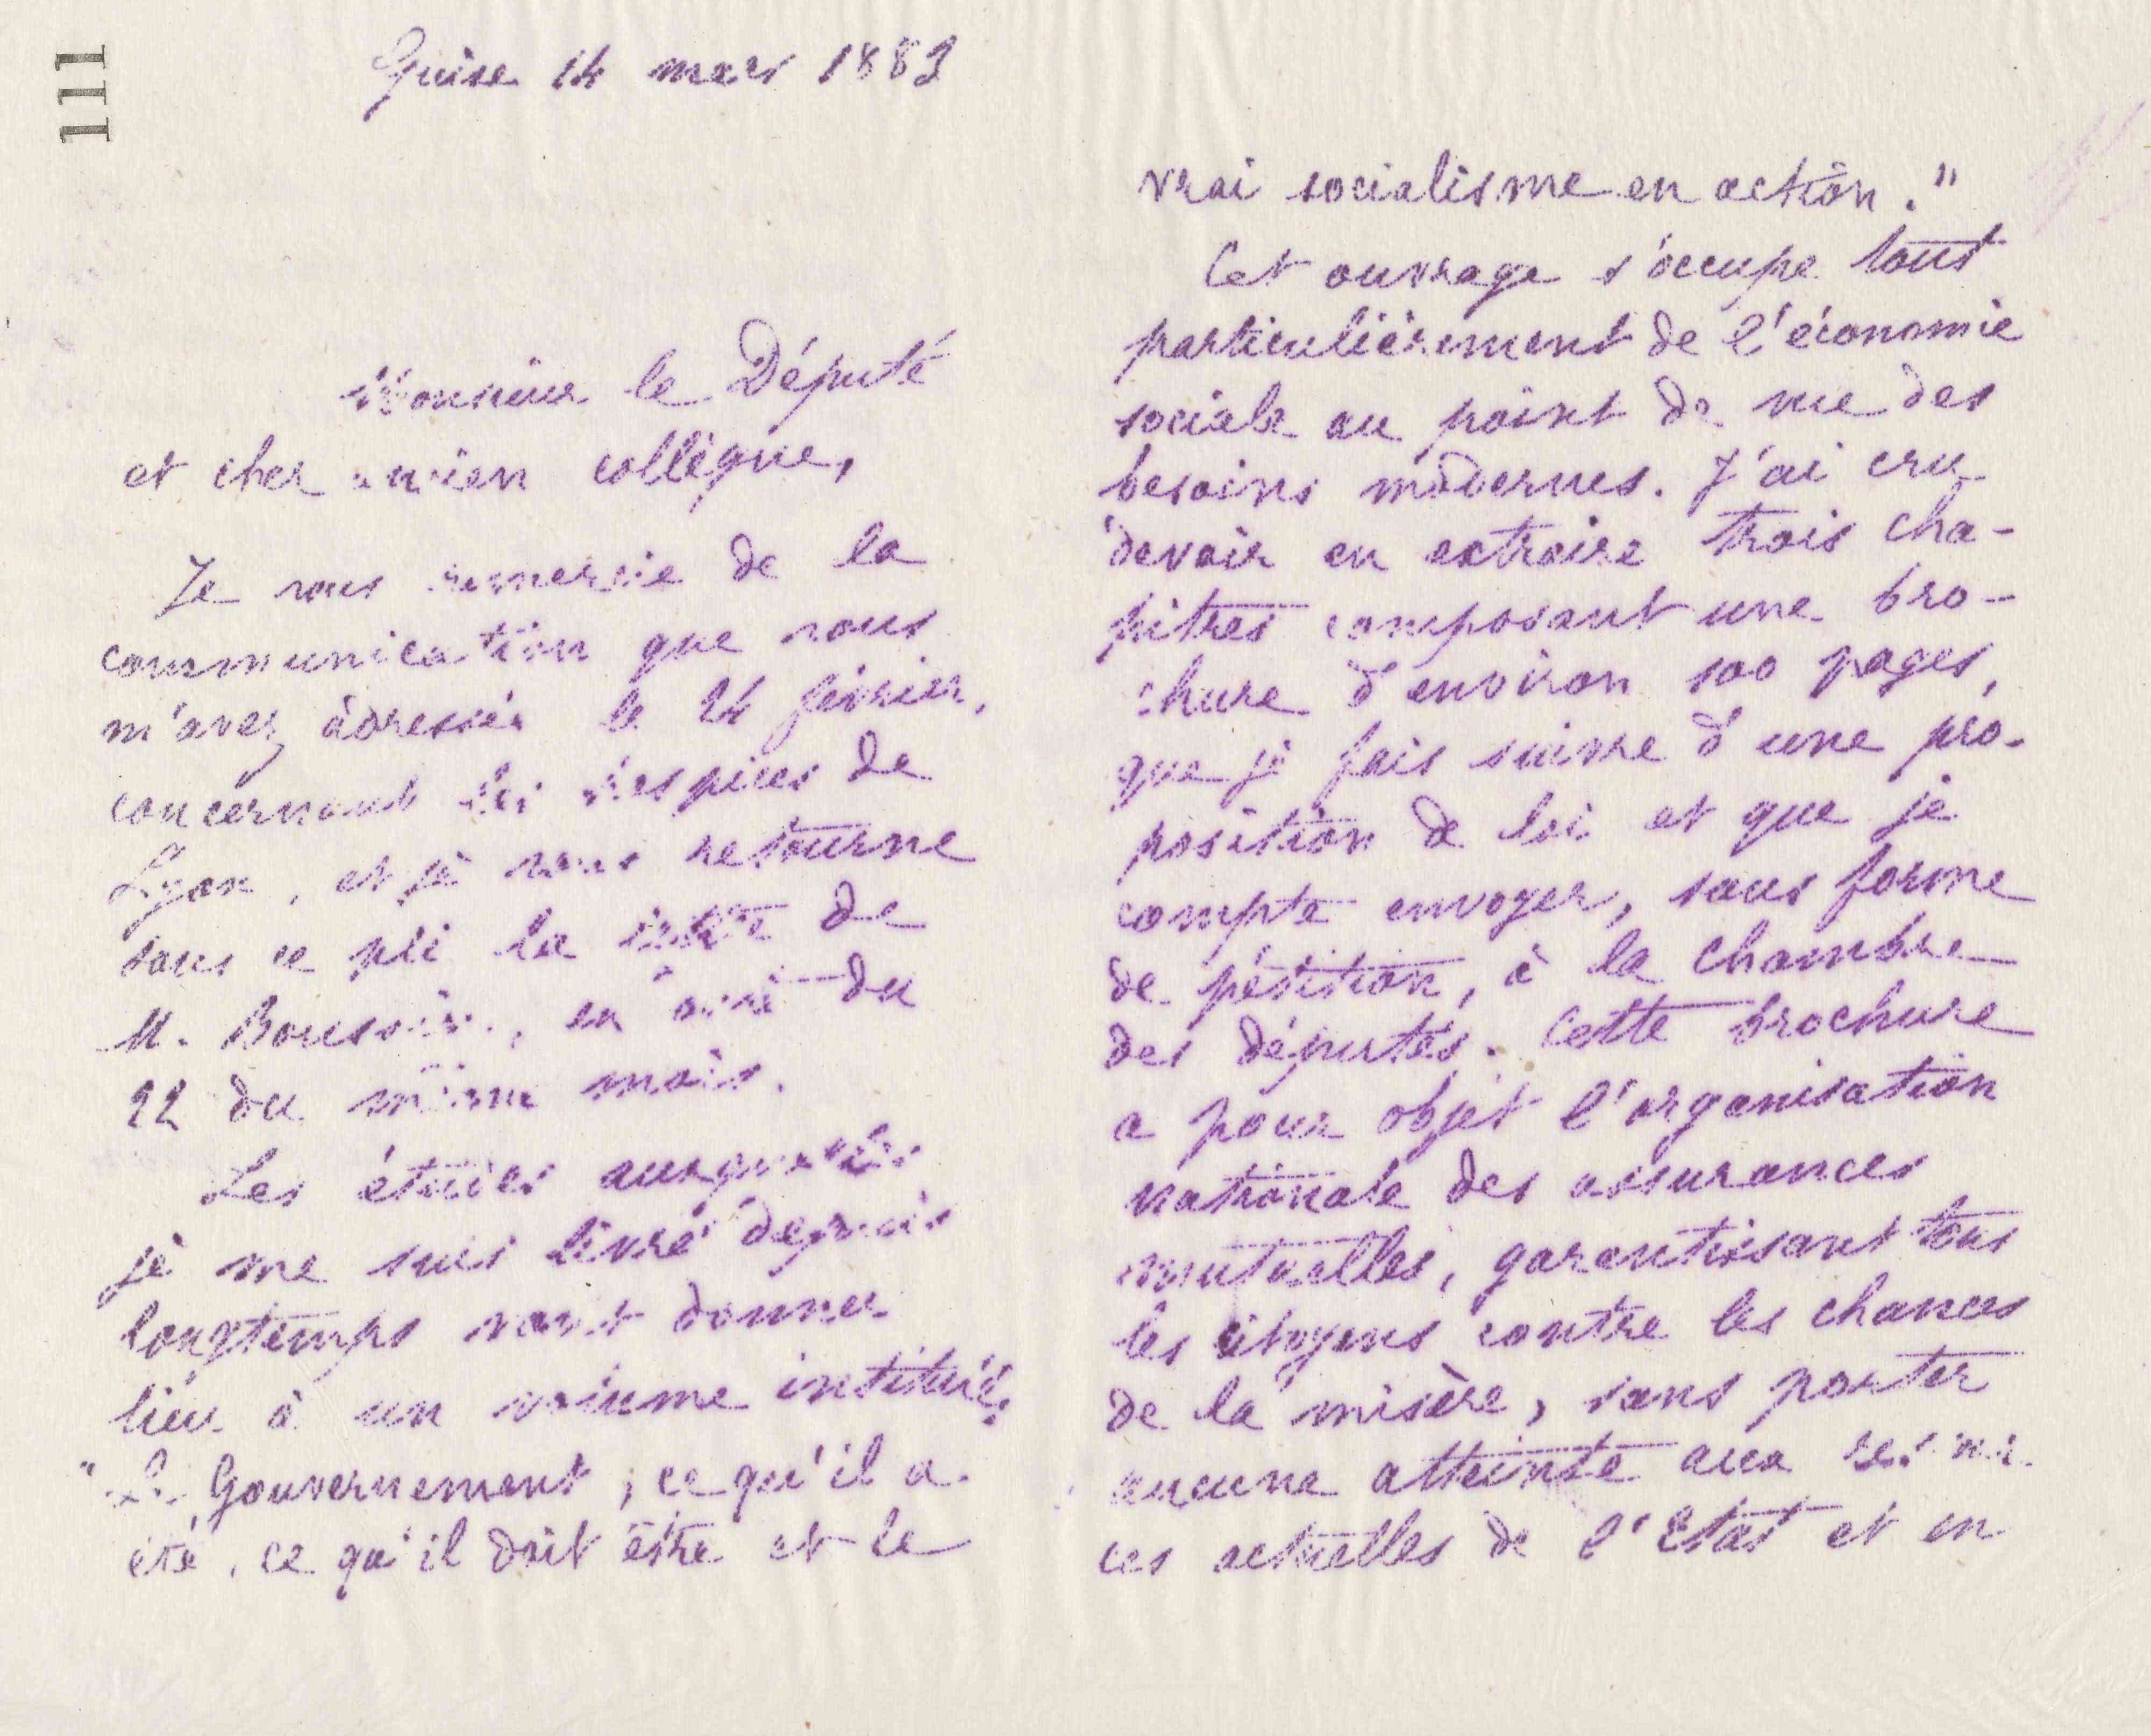 111
Guise 14 mars 1883
Monsieur le Député
et cher ancien collègue,
Je vous remercie de la
communication que vous
m'avez adressée le 24 février,
concernant les hospices de
Lyon, et je vous retourne
sous ce pli la lettre de
M. en date du
22 du même mois.
Les études auxquelles
je me suis livré depuis
longtemps vont donner
lieu à un volume intitulé:
"Le Gouvernement, ce qu'il a
été, ce qu'il doit être et le
vrai socialisme en action."
Cet ouvrage s'occupe tout
particulièrement de l'économie
sociale au point de vue des
besoins modernes. J'ai cru
devoir en extraire trois cha-
pitres composant une bro-
chure d'environ 100 pages,
que je fais suivre d'une pro-
position de loi et que je
compte envoyer, sous forme
de pétition, à la Chambre
des députés. Cette brochure
a pour objet l'organisation
nationale des assurances
mutuelles, garantissant tous
les citoyens contre les chances
de la misère, sans porter
aucune atteinte aux ressour-
ces actuelles de l'Etat et en